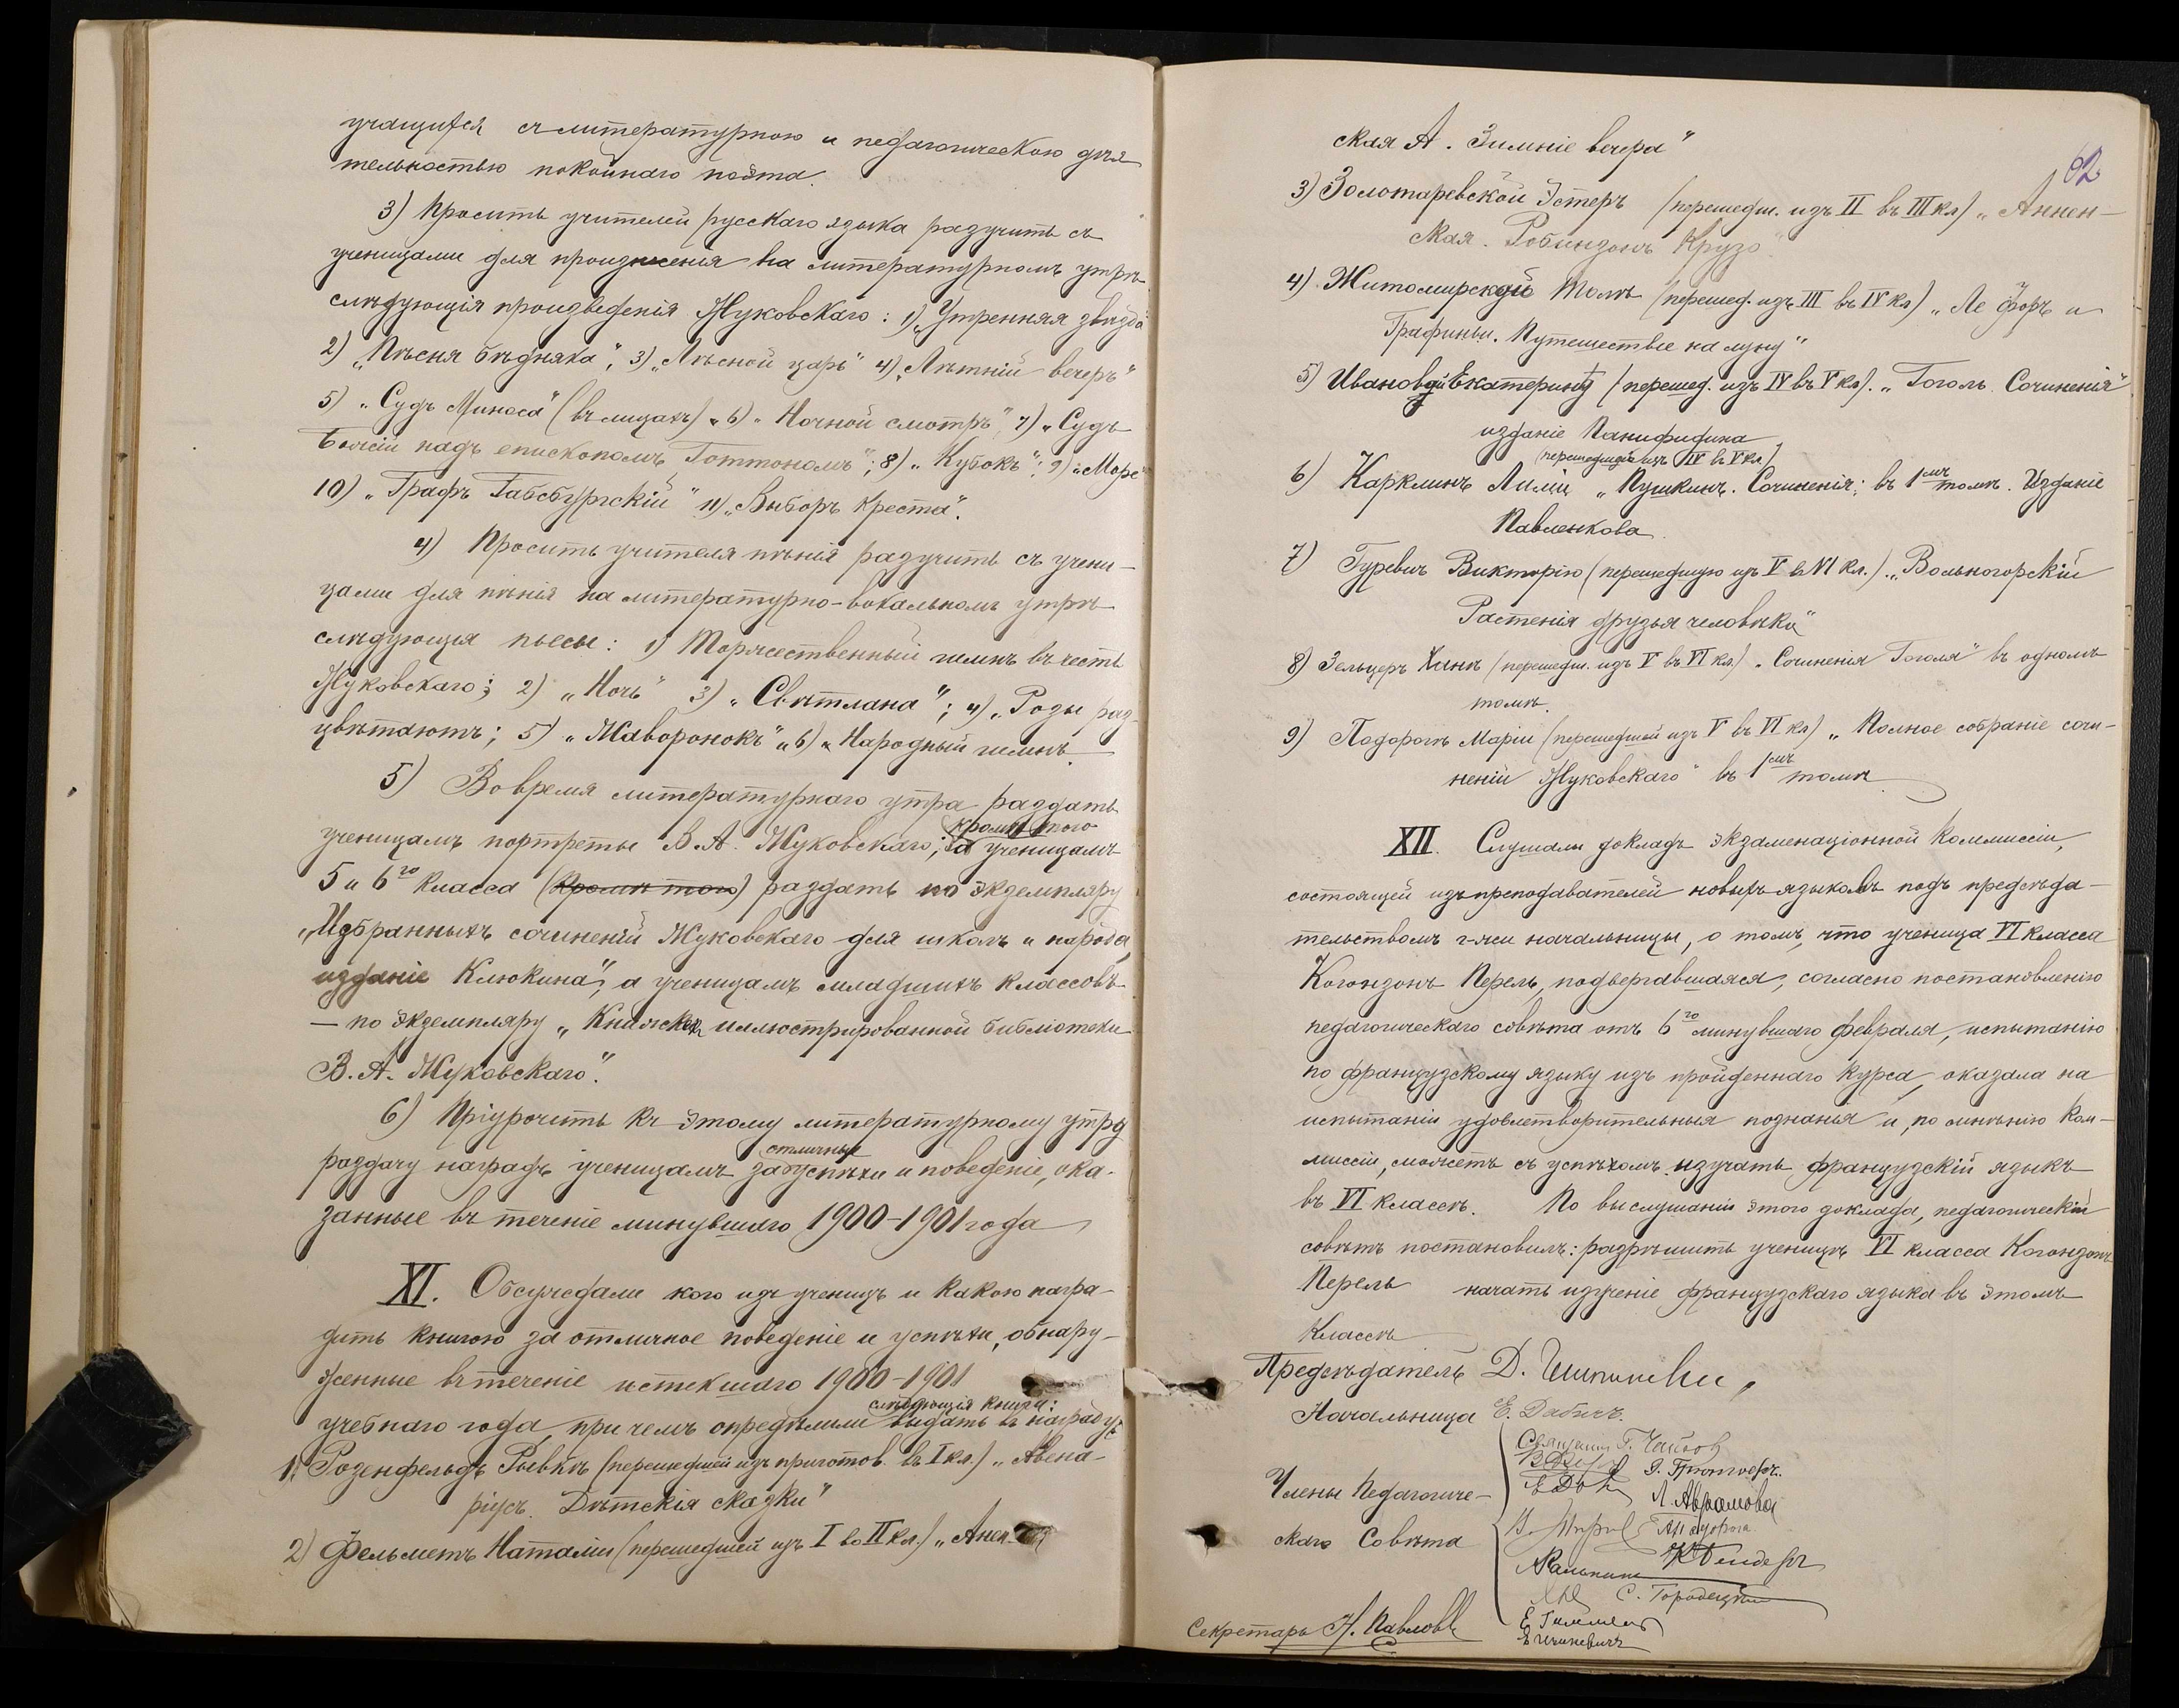 учащихся съ литературною и педагогическою дѣя
тельностью покойнаго поэта.
3) Просить учителей русскаго языка разучить съ
ученицами для произнесенія на литературномъ утрѣ
слѣдующія произведенія Жуковскаго: 1) „Утренняя звѣзда"
2) „Пѣсня бѣдняка", 3) „Лѣсной царь" 4) „Лѣтній вечеръ"
5) „Судъ Миноса" (въ лицахъ) 6) „Ночной смотръ", 7) „Судъ
Божій надъ епископомъ Готтономъ"; 8) „Кубокъ"; 9) „Море"
10) „Графъ Габсбургскій" 11) „Выборъ Креста".
4) Просить учителя пѣнія разучить съ учени-
цами для пѣнія на литературно-вокальномъ утрѣ
слѣдующія пьесы: 1) Торжественный гимнъ въ честь
Жуковскаго; 2) „Ночь" 3) „Свѣтлана"; 4) „Розы раз-
цвѣтаютъ; 5) „Жаворонокъ" 6) „Народный гимнъ.
5) Во время литературнаго утра раздать
ученицамъ портреты В. А. Жуковскаго; кромѣ того ученицамъ
5 и 6го класса (кромѣ того) раздать по экземпляру
„Избранныхъ сочиненій Жуковскаго для школъ и народа,
изданіе Клюкина", а ученицамъ младшихъ классовъ
— по экземпляру „Книжекъ иллюстрированной библіотеки
В. А. Жуковскаго".
6) Пріурочить къ этому литературному утру
раздачу наградъ ученицамъ за отличные успѣхи и поведеніе, ока-
занные въ теченіе минувшаго 1900-1901 года
XI. Обсуждали кого изъ ученицъ и какою награ-
дить книгою за отличное поведеніе и успѣхи, обнару-
женные въ теченіе истекшаго 1900-1901
учебнаго года, при чемъ опредѣлили выдать въ награду слѣдующія книги:
1) Розенфельдъ Рывкѣ (перешедшей изъ приготов. въ I кл.) „Авена-
ріусъ. Дѣтскія сказки"
2) Фельметъ Наталіи (перешедшей изъ I во II кл.) „Аннен
62
ская А. Зимніе вечера"
3) Золотаревской Эстеръ (перешедш. изъ II въ III кл) „Аннен-
ская. Робинзонъ Крузо"
4) Житомирской (перешед. изъ III въ IV кл) „Ле Форъ и
Графиньи. Путешествіе на луну"
5) Ивановой Екатеринѣ (перешед. изъ IV въ V кл). „Гоголь Сочиненія"
изданіе Панафидина
(перешедшей изъ IV въ V кл)
6) Карклинъ Лиліи „Пушкинъ. Сочиненія; въ 1мъ томѣ. Изданіе
Павленкова
7) Гуревичъ Викторію (перешедшую изъ V въ VI кл.) „Вольногорскій
Растенія друзья человѣка"
8) Зельцеръ Ханѣ (перешедш. изъ V въ VI кл) „Сочиненія Гоголя" въ одномъ
томѣ.
9) Маріи (перешедшей изъ V въ VI кл) „Полное собраніе сочи-
неній Жуковскаго" въ 1мъ томѣ
XII. Слушали докладъ экзаменаціонной Коммиссіи,
состоящей изъ преподавателей новыхъ языковъ подъ предсѣда-
тельствомъ г-жи начальницы, о томъ, что ученица VI класса
Когонзонъ Перель, подвергавшаяся, согласно постановленію
педагогическаго совѣта отъ 6го минувшаго февраля, испытанію
по французскому языку изъ пройденнаго курса, оказала на
испытаніи удовлетворительныя познанія и, по мнѣнію Ком-
миссіи, можетъ съ успѣхомъ изучать французскій языкъ
въ VI классѣ. По выслушаніи этого доклада, педагогическій
совѣтъ постановилъ: разрѣшить ученицѣ VI класса Когонзонъ
Перель начать изученіе французскаго языка въ этомъ
классѣ
Предсѣдатель Д.
Начальница Е. Дабичъ.
Священникъ Г.
Л. Аврамова
Члены Педагогиче-
скаго Совѣта
С. Городецкій
Секретарь Н. Павловъ